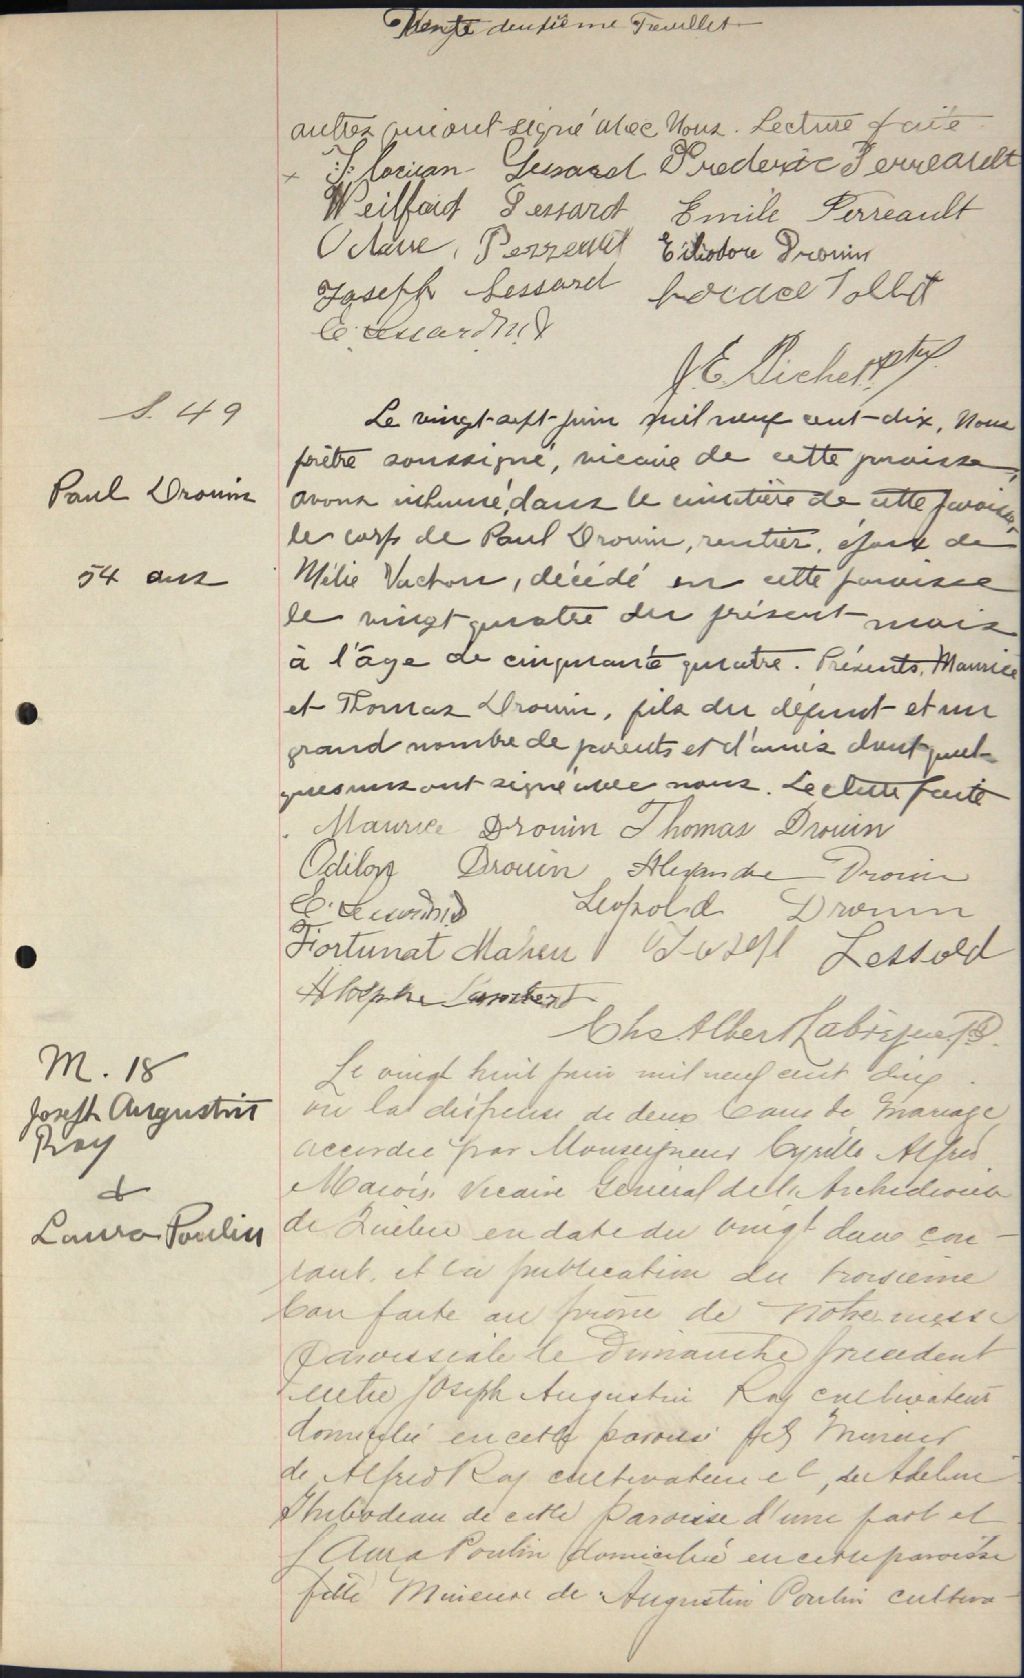 Trente deuxième Feuillet
autres qui ont signé avec Nous. Lecture faite
Florian Lessard Frederic Ferreault
Weilfaid Lessard Emile Ferreault
Octave Perreault Eliodore Drouin
Joseph Lessard
E. Lessard M.D
J. E. Richet ptre
S. 49
Paul Drouin
54 ans
Le vingt-sept juin mil neuf cent-dix, Nous
prêtre soussigné, vicaire de cette paroisse,
avons inhumé, dans le cimetière de cette paroisse,
le corps de Paul Drouin, rentier, époux de
Mélie Vachon, décédé en cette paroisse
le vingt quatre du présent mois
à l'âge de cinquante quatre. Présents, Maurice
et Thomas Drouin, fils du défunt et un
grand nombre de parents et d'amis dont quel-
ques uns ont signé avec nous. Lecture faite
Maurice Drouin Thomas Drouin
Odilon Drouin Alexandre Drouin
E. Lessard M.D Leopold Drouin
Fortunat Maheu Joseph Lessold
Lambert
Chs Albert Labrèque Ptr.
M. 18
Joseph Augustin
Roy
&
Laura Poulin
Le vingt huit juin mil neuf cent dix
vu la dispense de deux bans de mariage
accordée par Monseigneur Cyrille Alfred
Marois Vicaire Général de l'Archidiocèse
de Québec en date du vingt deux cou-
rant, et la publication du troisième
ban faite au prône de notre messe
paroissiale le Dimanche précédent
entre Joseph Augustin Roy cultivateur
domicilié en cette paroisse fils mineur
de Alfred Roy cultivateur et de Adeline
Thibodeau de cette paroisse d'une part et
Laura Poulin domiciliée en cette paroisse
fille Mineure de Augustin Poulin cultiva-